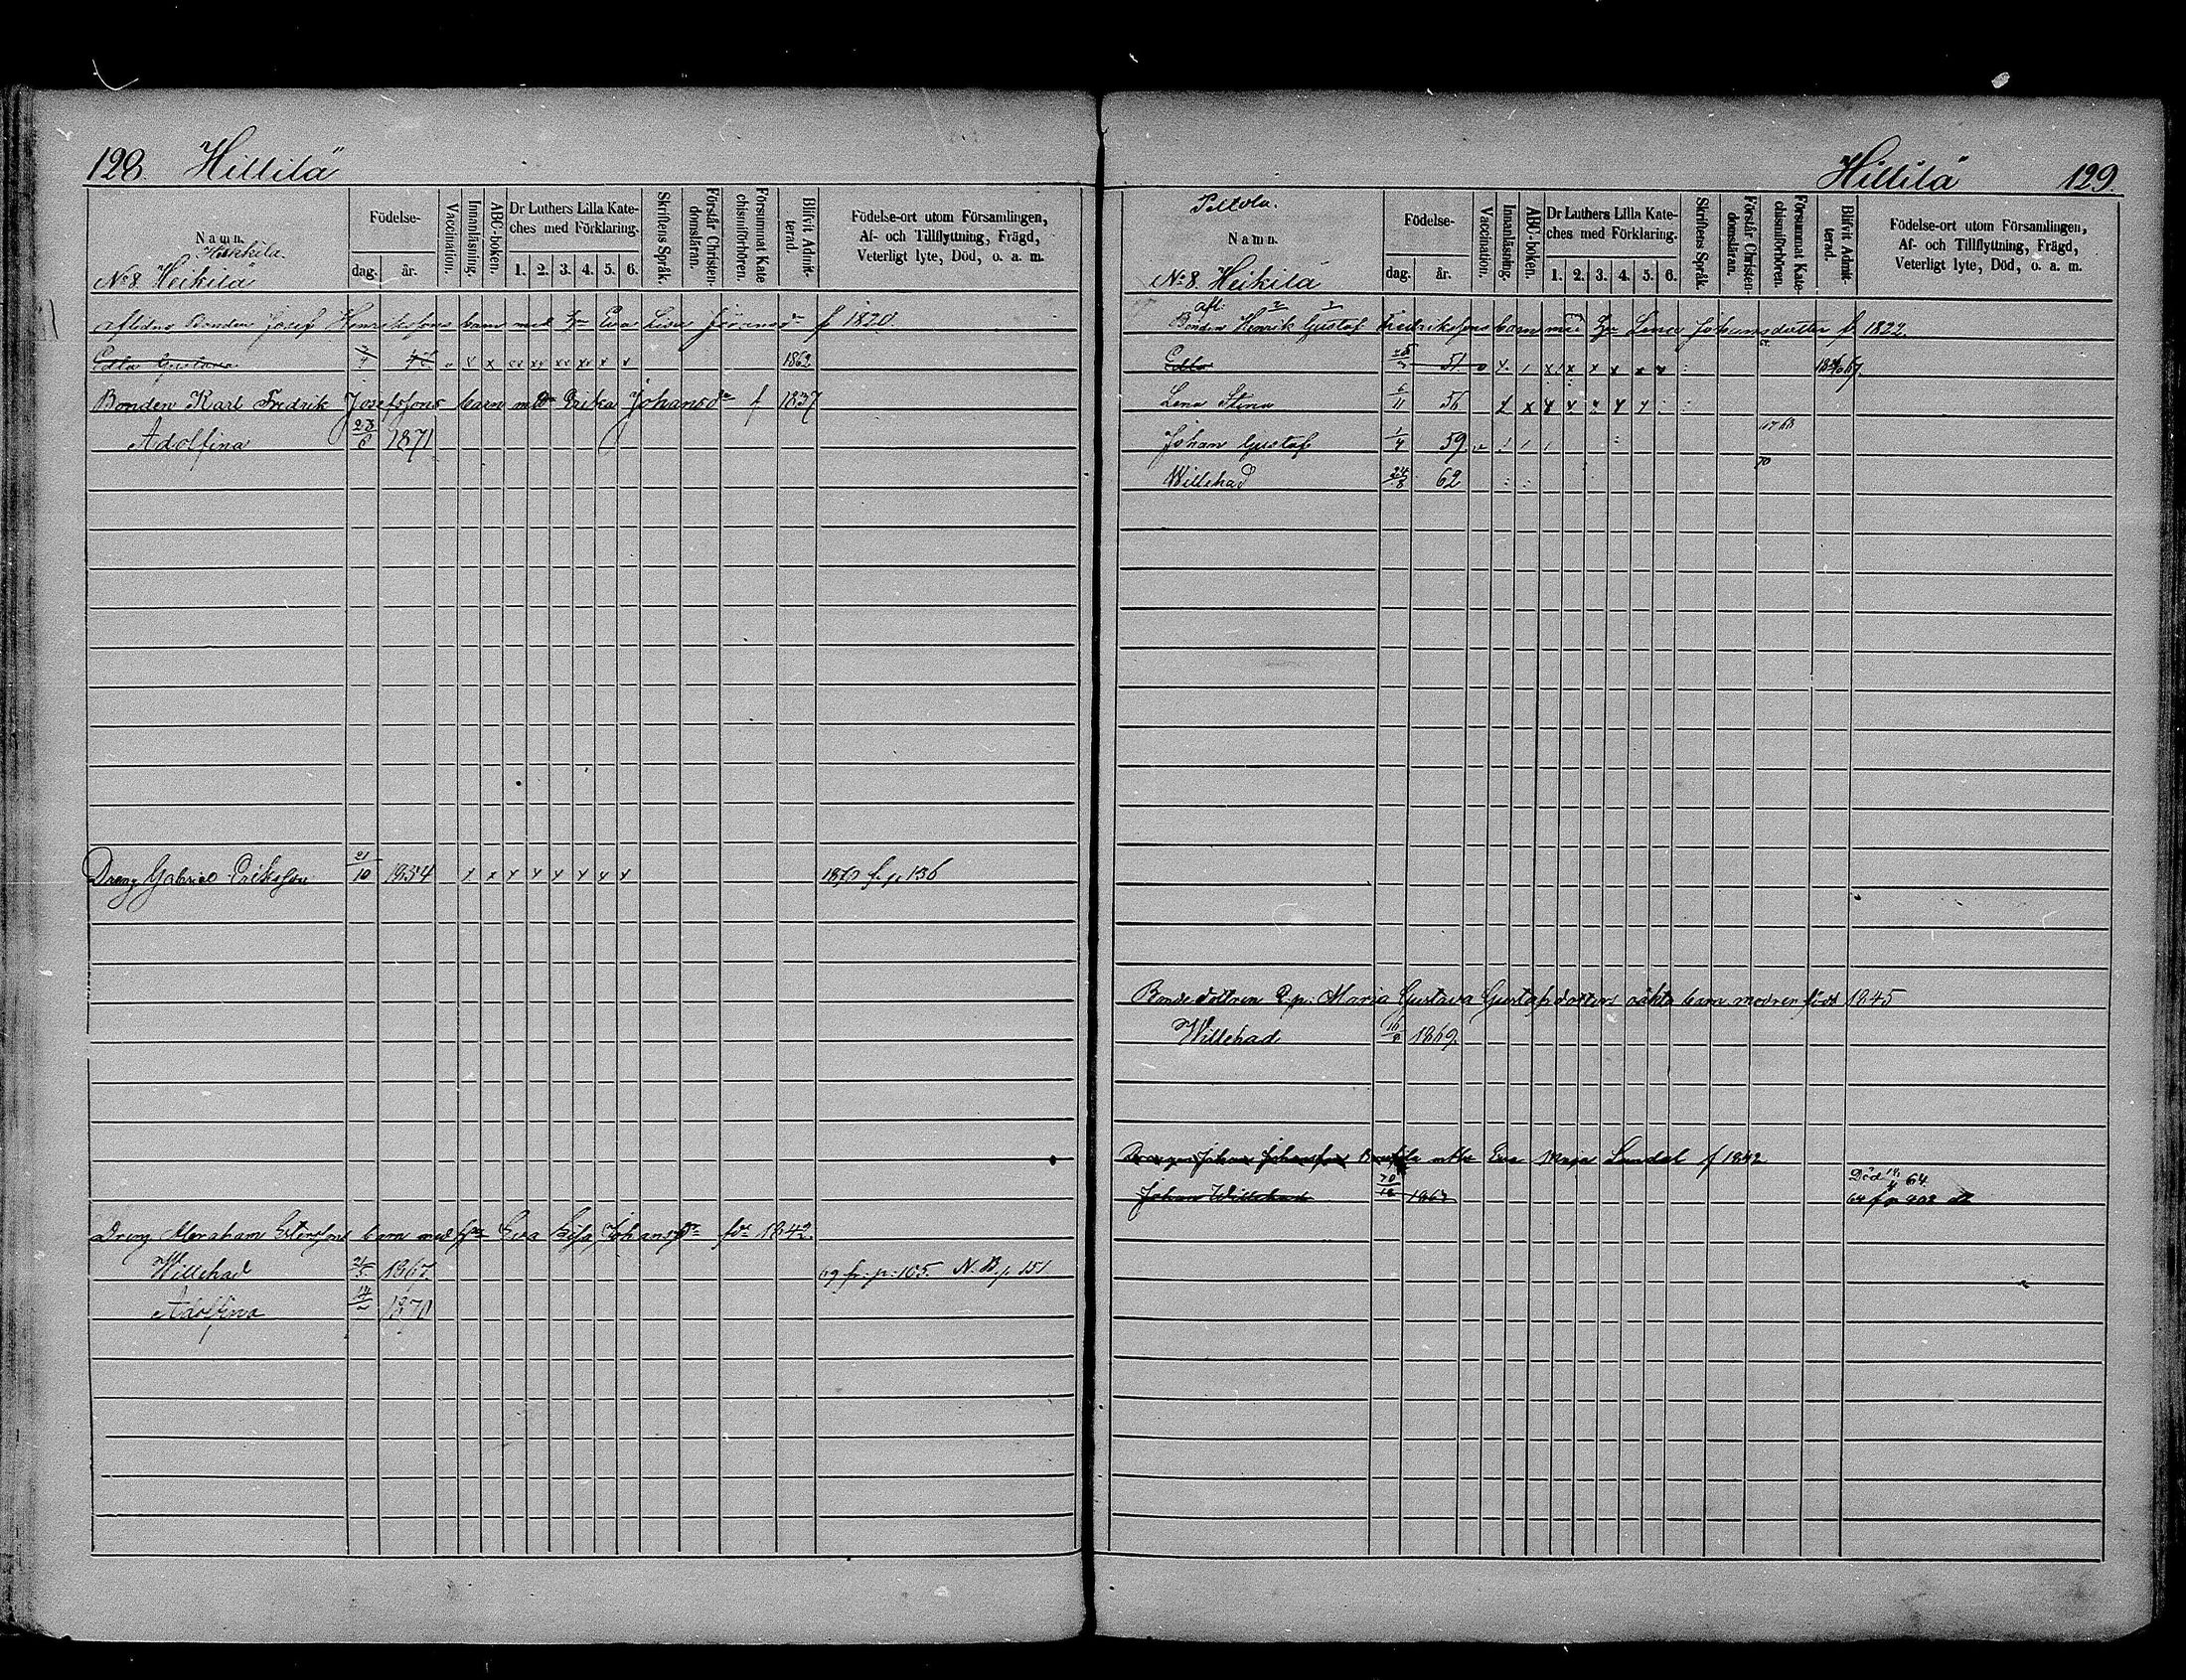 128. Hillilä
Namn.
Heikkilä.
No 8 Heikilä
Födelse-
dag. år.
Vaccination.
Innanläsning.
ABC-boken.
Dr Luthers Lilla Kate-
ches med Förklaring.
1. 2. 3. 4. 5. 6.
Skriftens Språk.
Förstår Christen-
domsläran.
Försummat Kate
chismiförhören.
Blifvit Admit-
terad.
Födelse-ort utom Församlingen,
Af- och Tillflyttning, Frägd,
Veterligt lyte, Död, o. a. m.
Aflidne Bonden Josef Henrikssons barn med Eva Lisa f 1820.
Edla Gustava 1862
Bonden Karl Fredrik Josefssons barn med Erika Johansdr f 1837
Adolfina 23/8 1871
Dreng Gabriel Eriksson 21/10 1854 x x x x x x x x 1870 fr. p. 136
Dreng Abraham barn med Eva Lisa Johansdr 1842.
Willehad 1867 69 fr. p. 165. N. B. p. 151
Adolfina 1870
Hillilä 129.
Peltola.
Namn.
No 8. Heikilä
Födelse-
dag. år.
Vaccination.
Innanläsning.
ABC-boken.
Dr Luthers Lilla Kate-
ches med Förklaring.
1. 2. 3. 4. 5. 6.
Skriftens Språk.
Förstår Christen-
domsläran.
Försummat Kate-
chismiförhören.
Blifvit Admit-
terad.
Födelse-ort utom Församlingen,
Af- och Tillflyttning, Frägd,
Veterligt lyte, Död, o. a. m.
Afl.
Bonden Henrik Gustaf Fredrikssons barn med Lena Johansdotter f. 1822
Edla 51
Lena Stina 6/11 56
67 68
Johan Gustaf 1/4 59
70
Willehad 24/8 62
Bonde dottren Maria Gustava Gustafsdotters oäkta barn modren född 1845
Willehad 1869.
Drengen Johan Johansson Eva Maja Sundel f 1842
Död 64
Johan Willehad 64 fr p 402